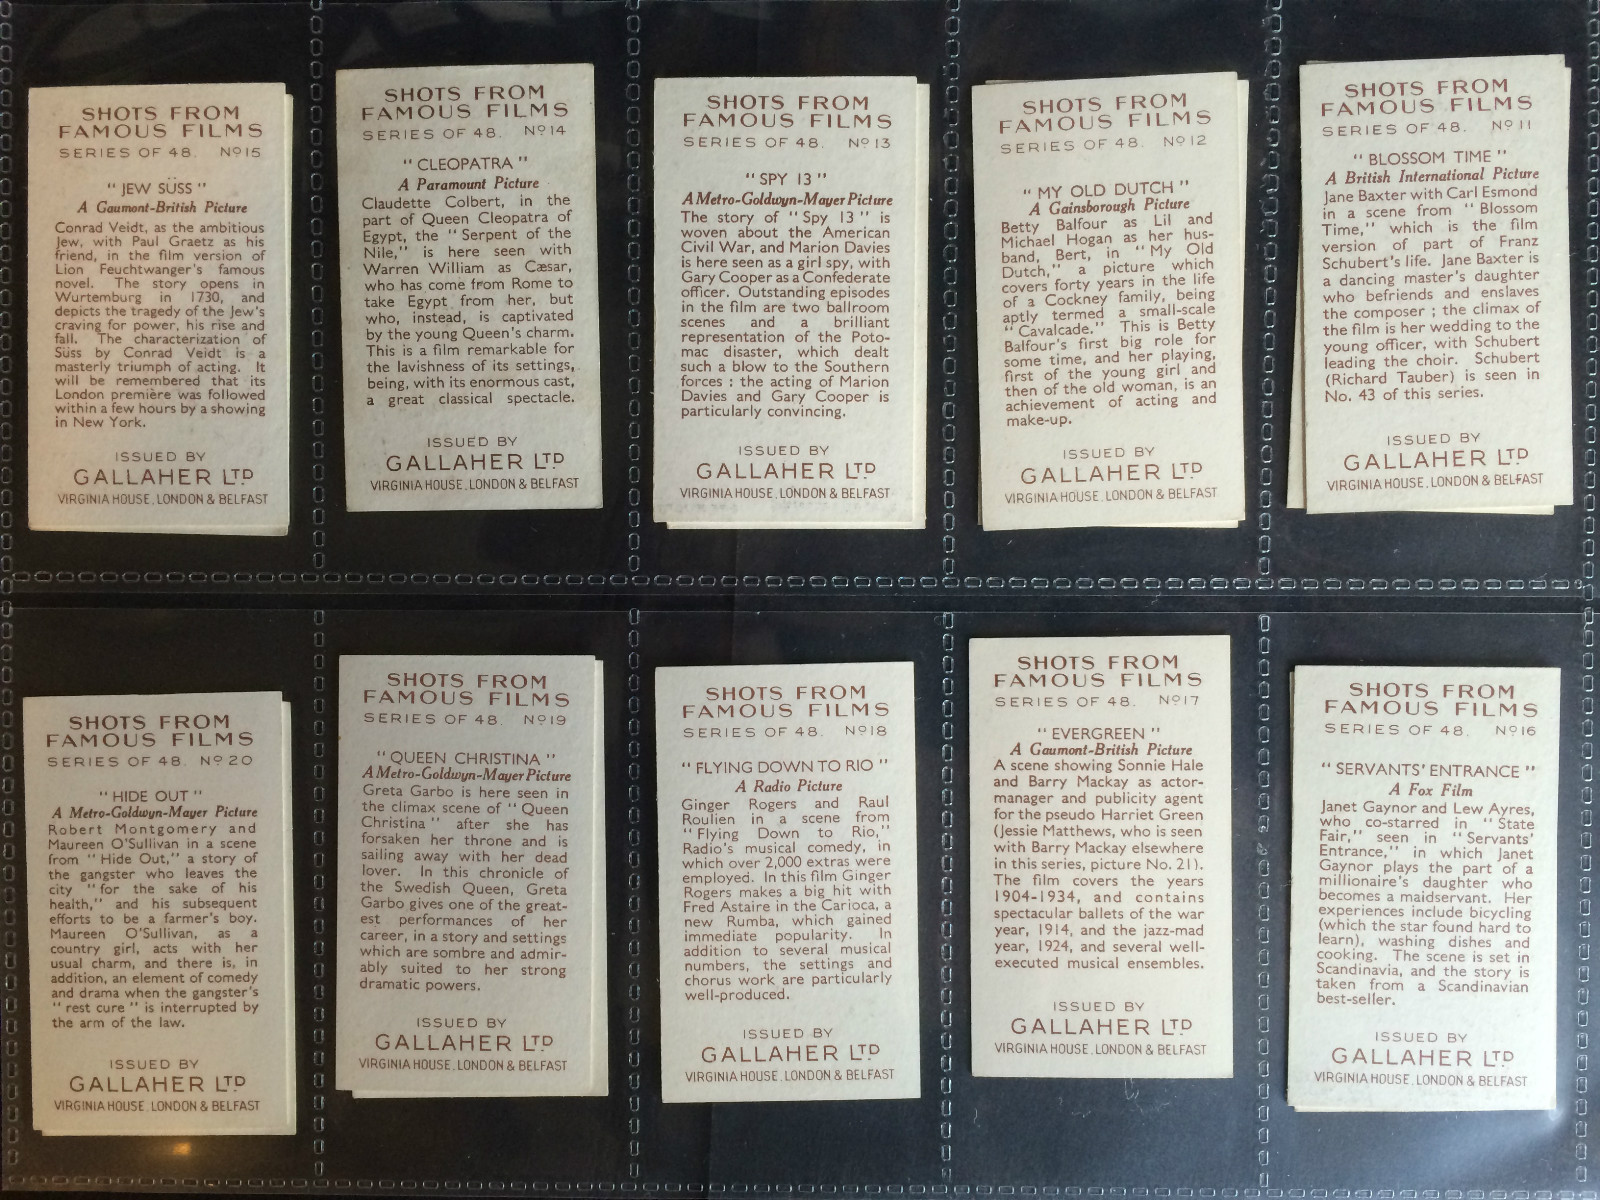 SHOTS FROM
FAMOUS FILMS
SERIES OF 48. Nº 15
"JEW SÜSS"
A Gaumont-British Picture
Conrad Veidt, as the ambitious
Jew, with Paul Graetz as his
friend, in the film version of
Lion Feuchtwanger's famous
novel. The story opens in
Wurtemburg in 1730, and
depicts the tragedy of the Jew's
craving for power, his rise and
fall. The characterization of
Süss by Conrad Veidt is a
masterly triumph of acting. It
will be remembered that its
London première was followed
within a few hours by a showing
in New York.
ISSUED BY
GALLAHER LTD
VIRGINIA HOUSE, LONDON & BELFAST
SHOTS FROM
FAMOUS FILMS
SERIES OF 48. Nº 14
"CLEOPATRA"
A Paramount Picture
Claudette Colbert, in the
part of Queen Cleopatra of
Egypt, the "Serpent of the
Nile," is here seen with
Warren William as Cæsar,
who has come from Rome to
take Egypt from her, but
who, instead, is captivated
by the young Queen's charm.
This is a film remarkable for
the lavishness of its settings,
being, with its enormous cast,
a great classical spectacle.
ISSUED BY
GALLAHER LTD
VIRGINIA HOUSE, LONDON & BELFAST
SHOTS FROM
FAMOUS FILMS
SERIES OF 48. Nº 13
"SPY 13"
A Metro-Goldwyn-Mayer Picture
The story of "Spy 13" is
woven about the American
Civil War, and Marion Davies
is here seen as a girl spy, with
Gary Cooper as a Confederate
officer. Outstanding episodes
in the film are two ballroom
scenes and a brilliant
representation of the Poto-
mac disaster, which dealt
such a blow to the Southern
forces : the acting of Marion
Davies and Gary Cooper is
particularly convincing.
ISSUED BY
GALLAHER LTD
VIRGINIA HOUSE, LONDON & BELFAST
SHOTS FROM
FAMOUS FILMS
SERIES OF 48. Nº 12
"MY OLD DUTCH"
A Gainsborough Picture
Betty Balfour as Lil and
Michael Hogan as her hus-
band, Bert, in "My Old
Dutch," a picture which
covers forty years in the life
of a Cockney family, being
aptly termed a small-scale
"Cavalcade." This is Betty
Balfour's first big role for
some time, and her playing,
first of the young girl and
then of the old woman, is an
achievement of acting and
make-up.
ISSUED BY
GALLAHER LTD
VIRGINIA HOUSE, LONDON & BELFAST
SHOTS FROM
FAMOUS FILMS
SERIES OF 48. Nº 11
"BLOSSOM TIME"
A British International Picture
Jane Baxter with Carl Esmond
in a scene from "Blossom
Time," which is the film
version of part of Franz
Schubert's life. Jane Baxter is
a dancing master's daughter
who befriends and enslaves
the composer ; the climax of
the film is her wedding to the
young officer, with Schubert
leading the choir. Schubert
(Richard Tauber) is seen in
No. 43 of this series.
ISSUED BY
GALLAHER LTD
VIRGINIA HOUSE, LONDON & BELFAST
SHOTS FROM
FAMOUS FILMS
SERIES OF 48. Nº 20
"HIDE OUT"
A Metro-Goldwyn-Mayer Picture
Robert Montgomery and
Maureen O'Sullivan in a scene
from "Hide Out," a story of
the gangster who leaves the
city "for the sake of his
health," and his subsequent
efforts to be a farmer's boy.
Maureen O'Sullivan, as a
country girl, acts with her
usual charm, and there is, in
addition, an element of comedy
and drama when the gangster's
"rest cure" is interrupted by
the arm of the law.
ISSUED BY
GALLAHER LTD
VIRGINIA HOUSE, LONDON & BELFAST
SHOTS FROM
FAMOUS FILMS
SERIES OF 48. Nº 19
"QUEEN CHRISTINA"
A Metro-Goldwyn-Mayer Picture
Greta Garbo is here seen in
the climax scene of "Queen
Christina" after she has
forsaken her throne and is
sailing away with her dead
lover. In this chronicle of
the Swedish Queen, Greta
Garbo gives one of the great-
est performances of her
career, in a story and settings
which are sombre and admir-
ably suited to her strong
dramatic powers.
ISSUED BY
GALLAHER LTD
VIRGINIA HOUSE, LONDON & BELFAST
SHOTS FROM
FAMOUS FILMS
SERIES OF 48. Nº 18
"FLYING DOWN TO RIO"
A Radio Picture
Ginger Rogers and Raul
Roulien in a scene from
"Flying Down to Rio,"
Radio's musical comedy, in
which over 2,000 extras were
employed. In this film Ginger
Rogers makes a big hit with
Fred Astaire in the Carioca, a
new Rumba, which gained
immediate popularity. In
addition to several musical
numbers, the settings and
chorus work are particularly
well-produced.
ISSUED BY
GALLAHER LTD
VIRGINIA HOUSE, LONDON & BELFAST
SHOTS FROM
FAMOUS FILMS
SERIES OF 48. Nº 17
"EVERGREEN"
A Gaumont-British Picture
A scene showing Sonnie Hale
and Barry Mackay as actor-
manager and publicity agent
for the pseudo Harriet Green
(Jessie Matthews, who is seen
with Barry Mackay elsewhere
in this series, picture No. 21).
The film covers the years
1904-1934, and contains
spectacular ballets of the war
year, 1914, and the jazz-mad
year, 1924, and several well-
executed musical ensembles.
ISSUED BY
GALLAHER LTD
VIRGINIA HOUSE, LONDON & BELFAST
SHOTS FROM
FAMOUS FILMS
SERIES OF 48. Nº 16
"SERVANTS' ENTRANCE"
A Fox Film
Janet Gaynor and Lew Ayres,
who co-starred in "State
Fair," seen in "Servants'
Entrance," in which Janet
Gaynor plays the part of a
millionaire's daughter who
becomes a maidservant. Her
experiences include bicycling
(which the star found hard to
learn), washing dishes and
cooking. The scene is set in
Scandinavia, and the story is
taken from a Scandinavian
best-seller.
ISSUED BY
GALLAHER LTD
VIRGINIA HOUSE, LONDON & BELFAST